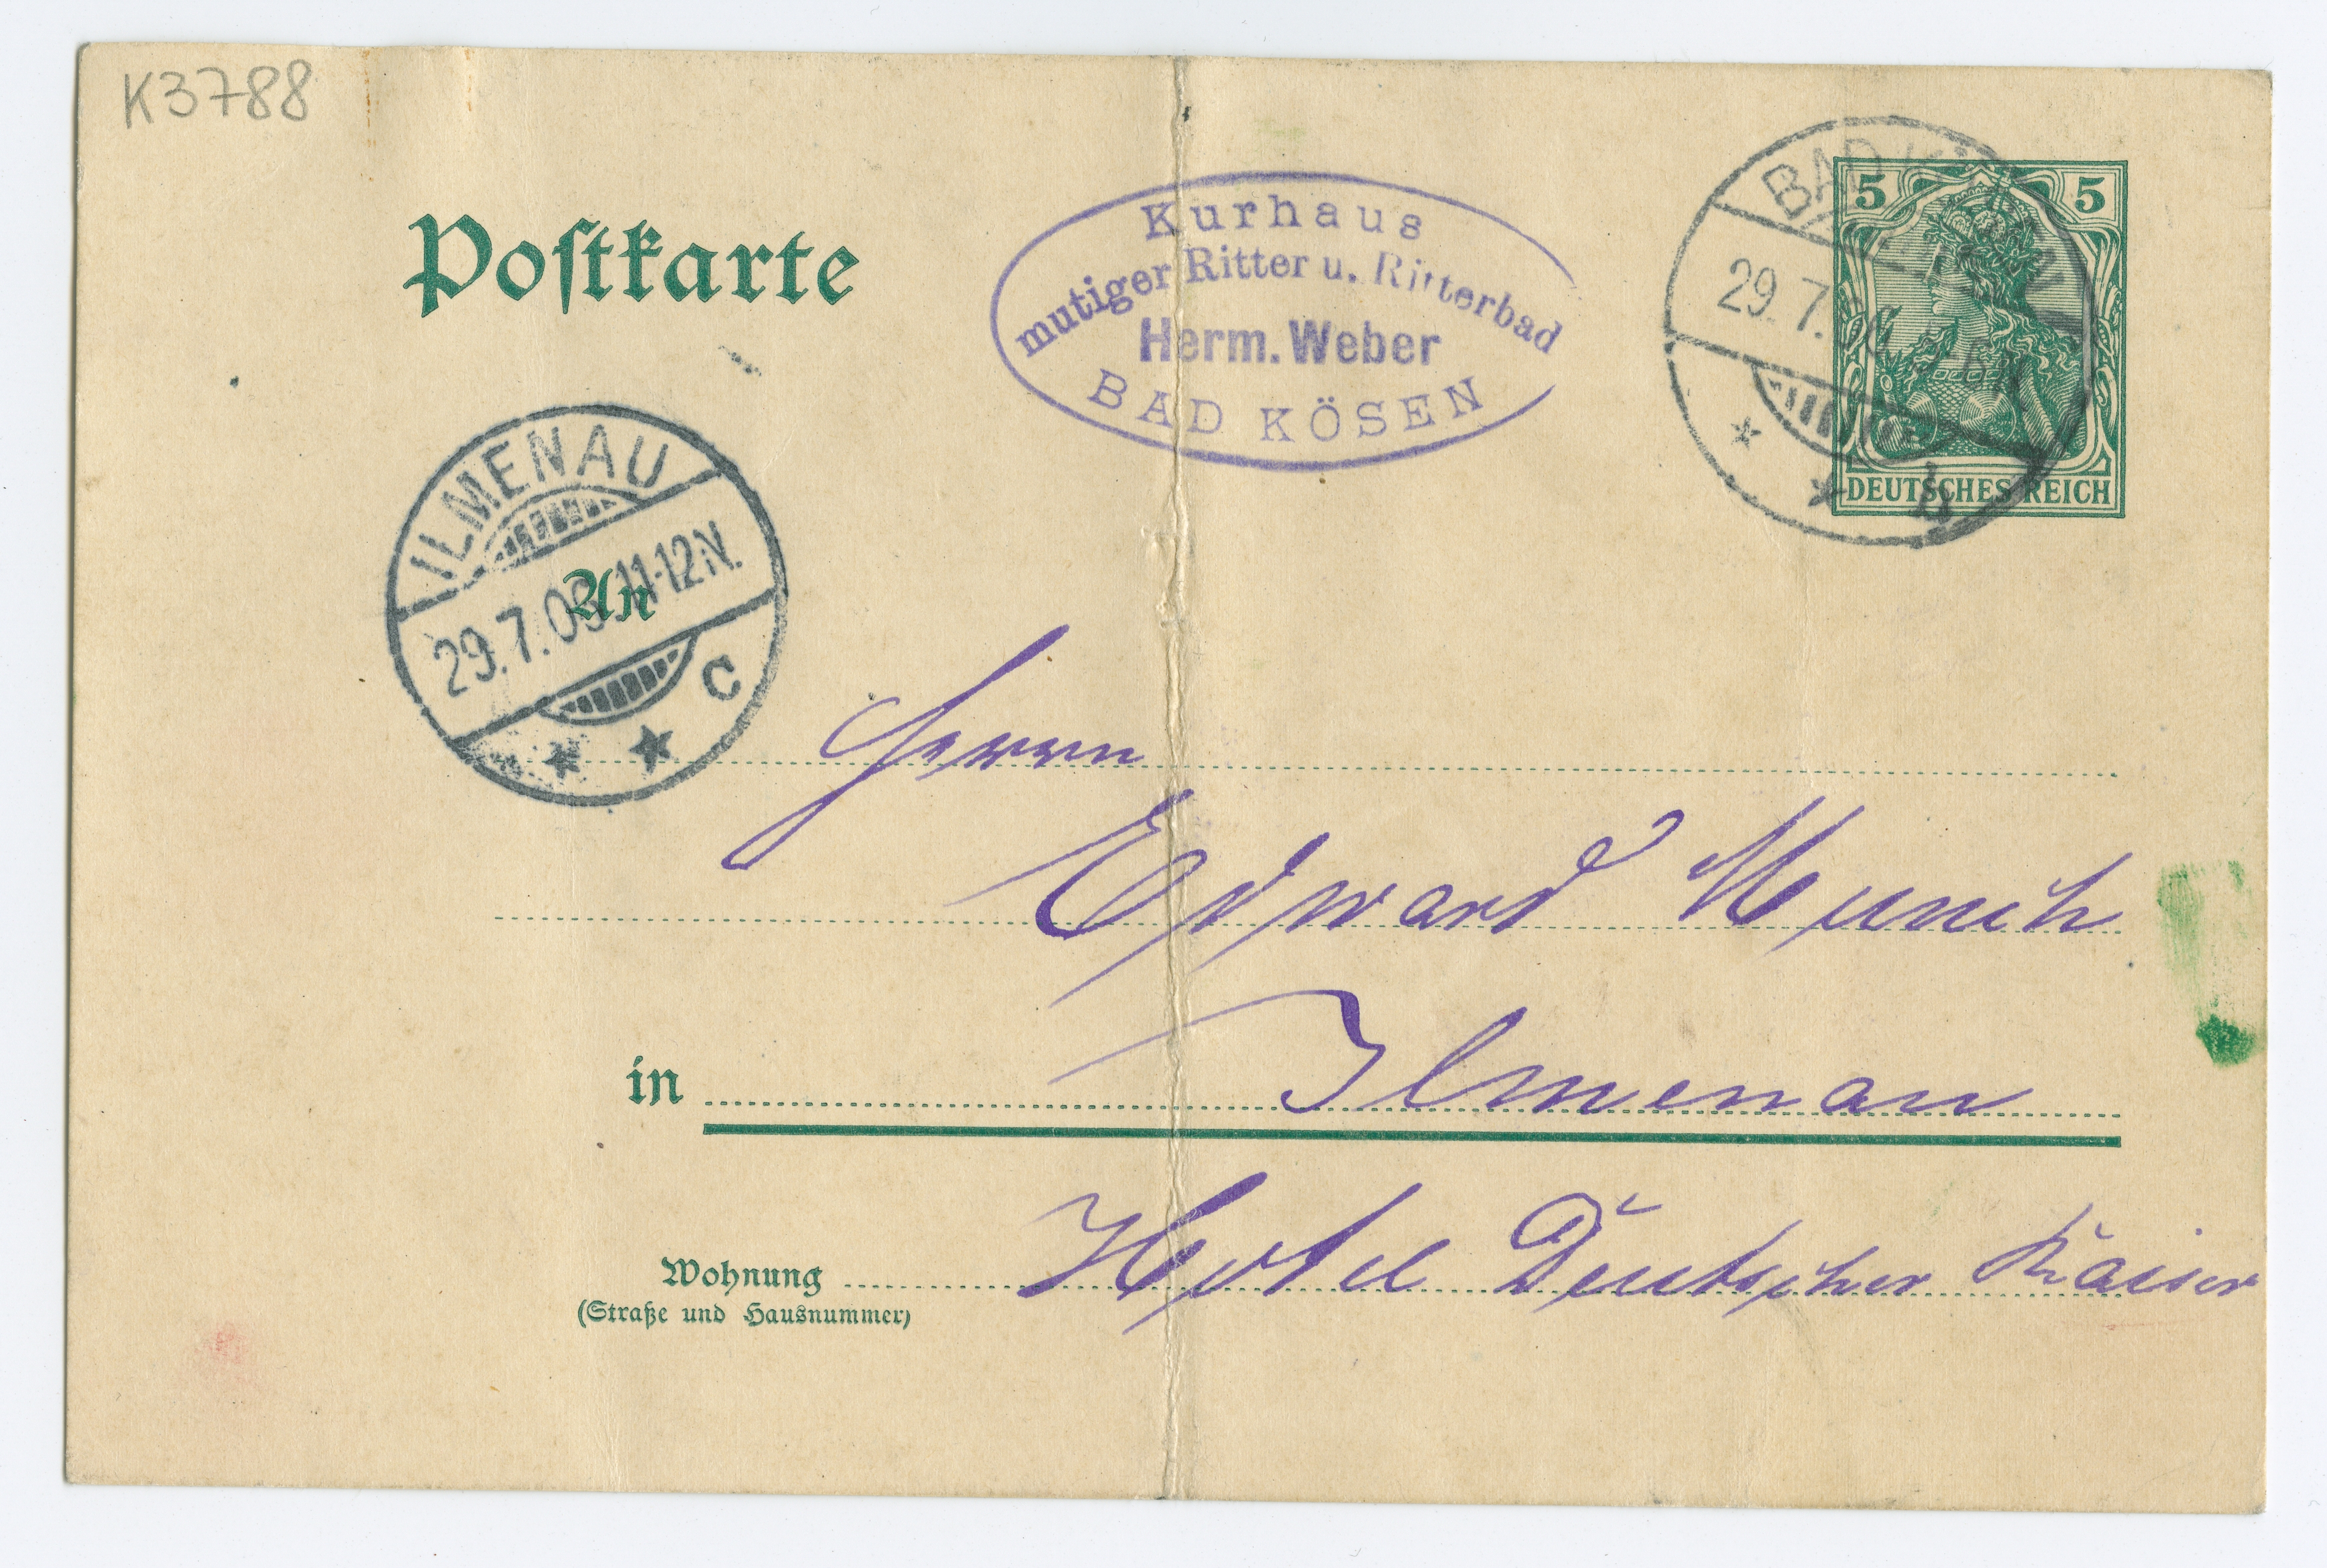 K3788
Postkarte
Kurhaus
mutiger Ritter u. Ritterbad
Herm. Weber
BAD KÖSEN
BAD KÖSEN
29.7.
b
5 5
DEUTSCHES REICH
ILMENAU
29.7.06 11-12N.
C
An
Herrn
Edward Munch
in Ilmenau
Wohnung Hotel Deutscher Kaiser
(Straße und Hausnummer)